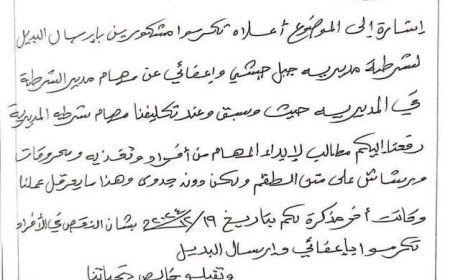 إشارة إلى الموضوع أعلاه تكرموا مشكورين بإرسال البديل
لشرطة مديرية جبل حبشي وإعفائي عن مهام مدير الشرطة
في المديرية حيث وسبق وعند تكليفنا مهام شرطة المديرية
رفعنا إليكم مطالب لإبداء المهام من أفراد وتغذية ومحروقات
ورشاش على متن الطقم ولكن دون جدوى وهذا ما يعرقل عملنا
وكانت آخر مذكرة لكم بتاريخ ١٩/١٢/ بشأن النقص في الأفراد
تكرموا بإعفائي وإرسال البديل
وتقبلو خالص تحياتنا